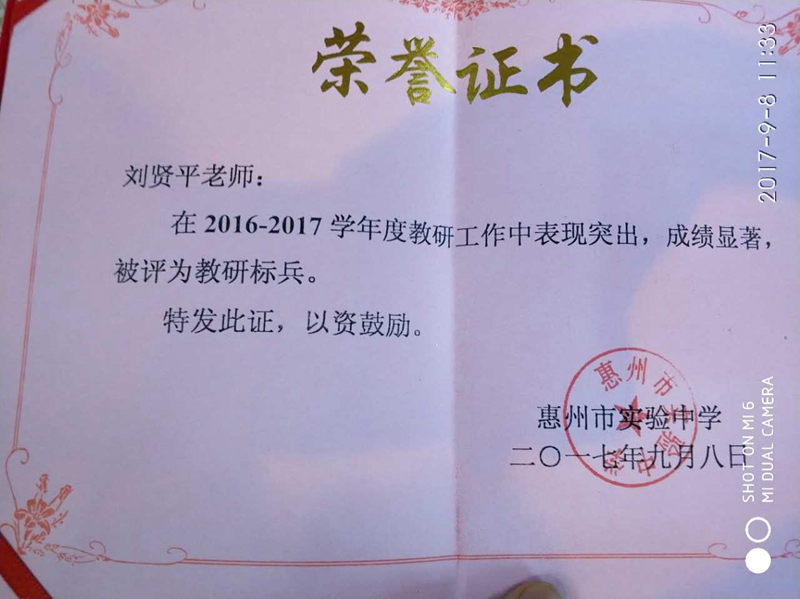 荣誉证书
刘贤平老师：
在2016-2017学年度教研工作中表现突出，成绩显著，
被评为教研标兵。
特发此证，以资鼓励。
惠州市实验中学
二〇一七年九月八日
惠州市实验中学
2017-9-8 11:33
SHOT ON MI 6
MI DUAL CAMERA